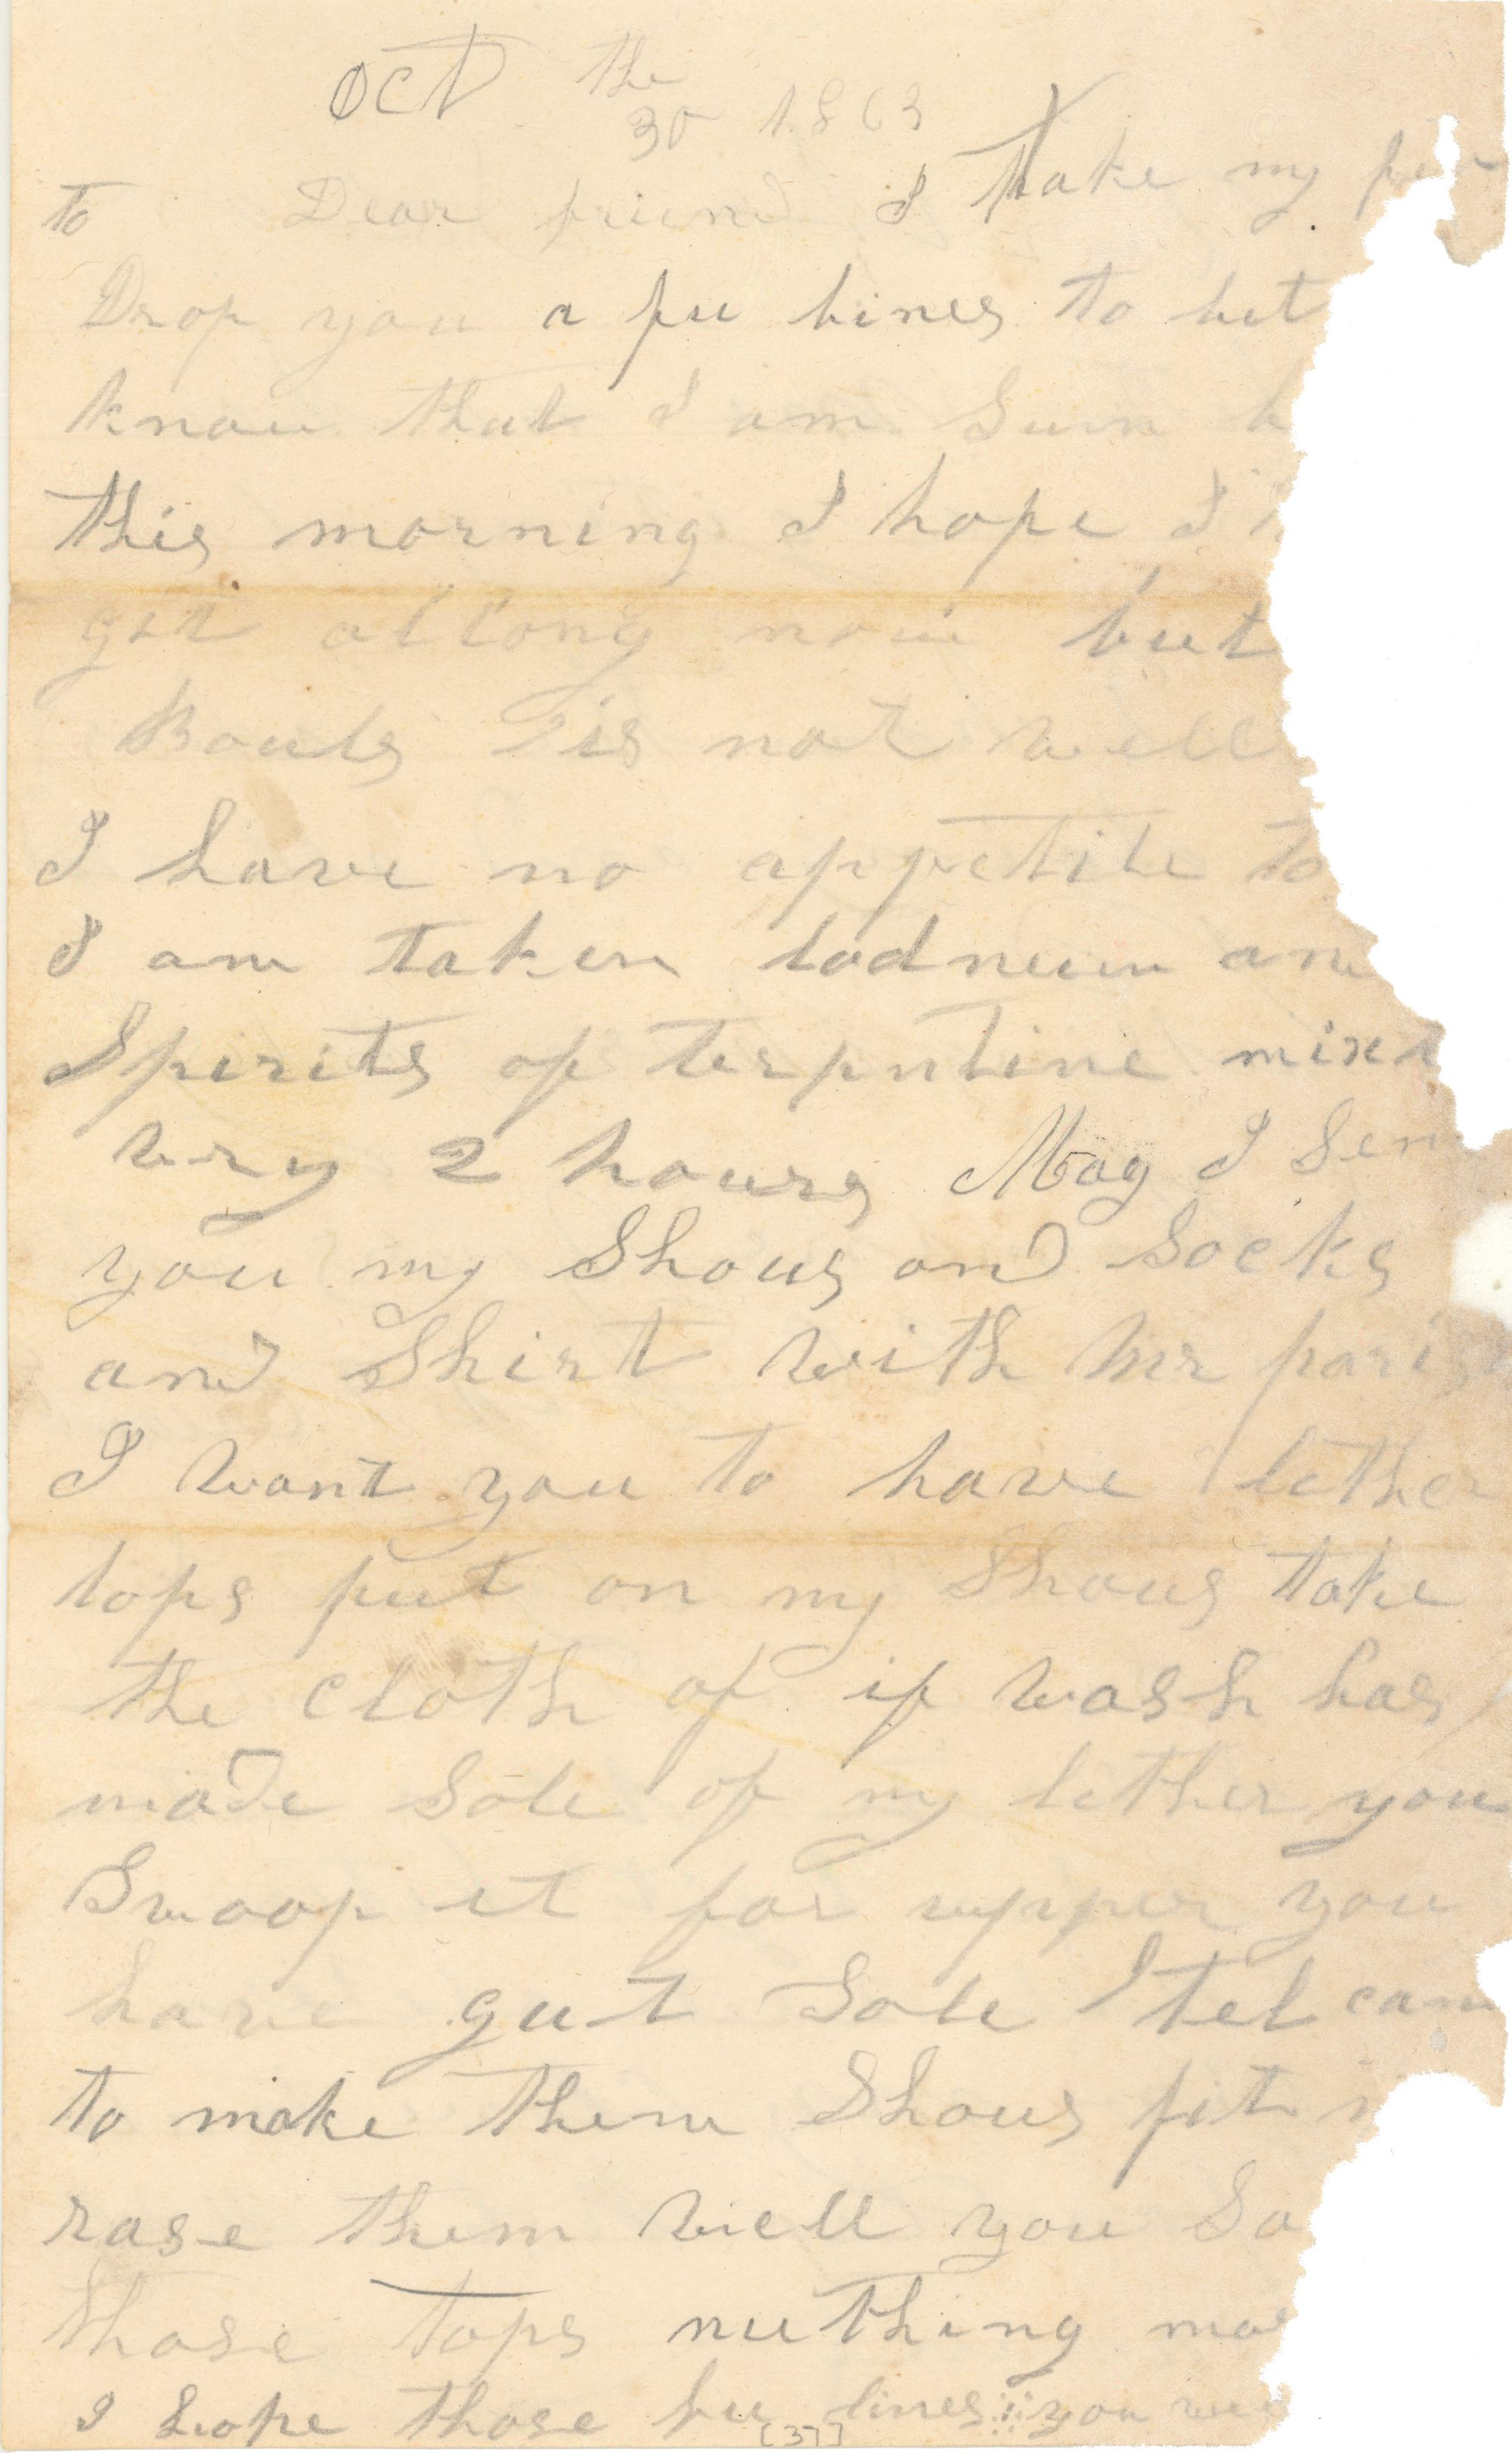 Oct the 30 1863
to Dear friend I take my pen
Drop you a fu lines to let
know that I am Sum
this morning I hope I
get allong now but
Bouls is not well
I have no appetite to
I am taken lodnum an
Spirits of terpntine mixt
evry 2 hours Mag I Sen
you my Shous and Socks
and Shirt with Mr paris
I want you to have lether
tops put on my Shous take
the cloth of if wash has
made Sole of my lether you
Swoop it for upper you
have gut Sole I tel cam
to make them Shous fit
rase them well you So
those tops nuthing mor
I hope those fu lines you
[37]